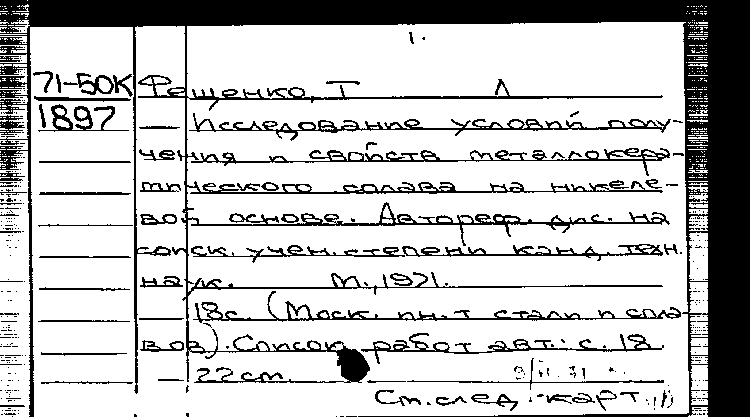 1.
71-50К Фещенко, Т Л
1897 — Исследование условий полу-
чения и свойств металлокера-
мического сплава на никеле-
вой основе. Автореф. дис. на
соиск. учен. степени канд. техн.
наук. М., 1971.
18с. (Моск. ин-т стали и спла-
вов). Список работ авт.: с. 18
— 22см.
См. след. карт.